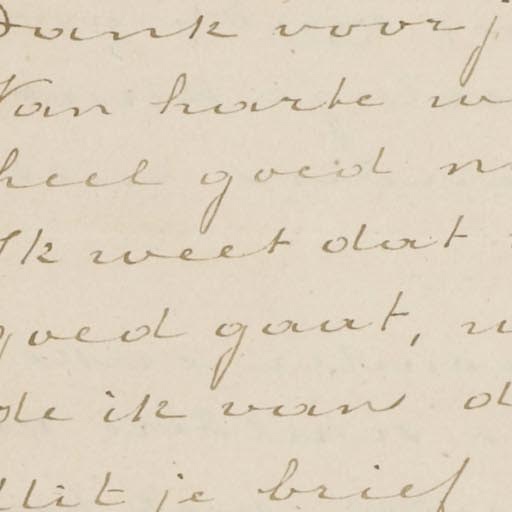 Dank voor j
Van harte w
heel goed
Ik weet dat
goed gaat,
de ik van d
Uit je brief